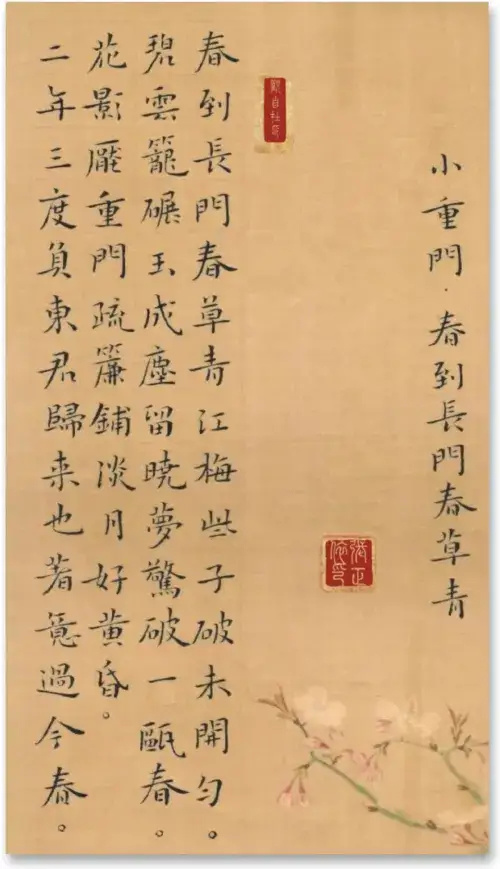 小重門·春到長門春草青
春到長門春草青江梅些子破未開勻。
碧雲籠碾玉成塵留曉夢驚破一甌春。
花影厭重門疏簾鋪淡月好黄昏。
二年三度負東君歸来也着意過今春。